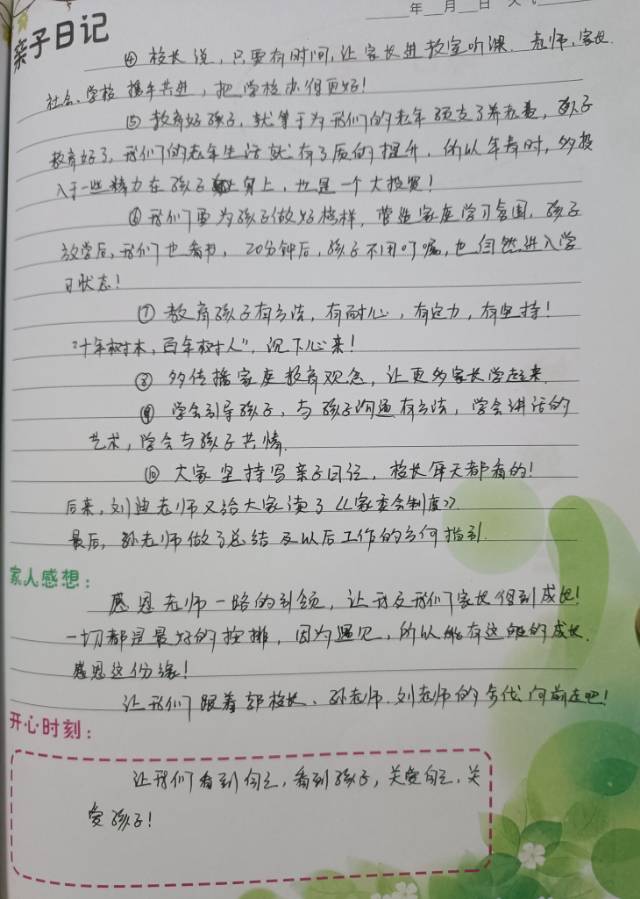 亲子日记
年 月 日 天气
④ 校长说，只要有时间，让家长进教室听课. 老师，家长
社会、学校 携手共进，把学校办得更好！
⑤ 教育好孩子，就等于为我们的老年预支了养老费，孩子
教育好了，我们的老年生活就有了质的提升，所以年青时，多投
入于一些精力在孩子身上，也是一个大投资！
⑥ 我们要为孩子做好榜样，营造家庭学习氛围，孩子
放学后，我们也看书，20分钟后，孩子不用叮嘱，也自然进入学
习状态！
⑦ 教育孩子有方法，有耐心，有定力，有坚持！
“十年树木，百年树人”，沉下心来！
⑧ 多传播家庭教育观念，让更多家长学起来.
⑨ 学会引导孩子，与孩子沟通有方法，学会讲话的
艺术，学会与孩子共情.
⑩ 大家坚持写亲子日记，校长每天都看的！
后来，刘迪老师又给大家读了《家委会制度》.
最后，孙老师做了总结及以后工作的方向指引.
家人感想：
感恩老师一路的引领，让我及我们家长得到成长！
一切都是最好的按排，因为遇见，所以能有这的成长.
感恩这份缘！
让我们跟着郭校长、孙老师.刘老师的步伐向前走吧！
开心时刻：
让我们看到自己，看到孩子，关爱自己，关
爱孩子！